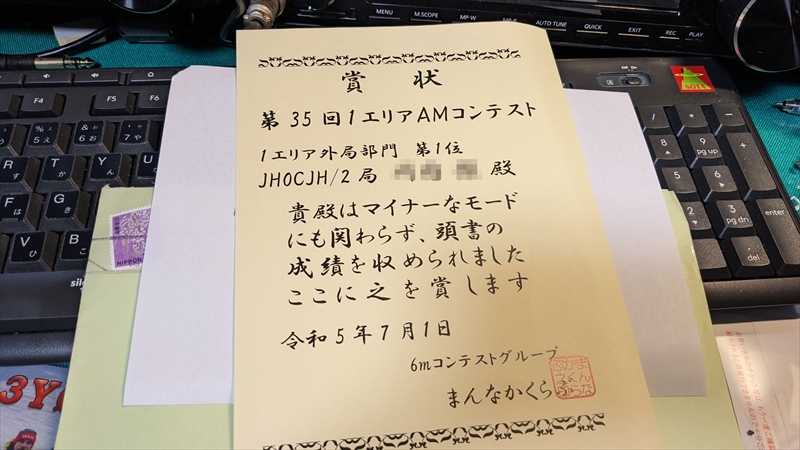 MENU M.SCOPE MP-W MP-R AUTO TUNE QUICK EXIT REC PLAY
賞 状
第 35 回 1 エリア AM コンテスト
1 エリア外局部門 第 1 位
JH0CJH/2 局 殿
貴殿はマイナーなモード
にも関わらず、頭書の
成績を収められました
ここに之を賞します
令和 5 年 7 月 1 日
6mコンテストグループ
まんなかくらぶ
まんな
かくら
NIPPON
SOTA
F4 F5 F6
R T Y
F G
V B
7 8 9 pg up
4 5 6
1 2 3 pg dn
enter
0
3Y